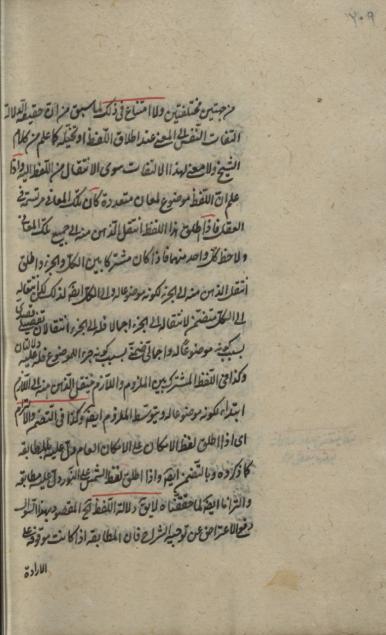 ٢٠٩
من جهتين مختلفتين ولا امتناع فى ذلك لما سبق من ان حقيقة الدلالة
التفات النفس الى المعنى عند اطلاق اللفظ او تخيله كما علم من كلام
الشيخ ولا معنى لهذا الالتفات سوى الانتقال من اللفظ اليه واذا
علم ان اللفظ موضوع لمعان متعددة كان تلك المعانى مرتسمة فى
العقل فاذا اطلق هذا اللفظ انتقل الذهن منه الى جميع تلك المعانى
ولاحظ كل واحد منها فاذا كان مشتركا بين الكل والجزء واطلق
انتقل الذهن منه الى الجزء لكونه موضوعا له والى الكل ايضا لذلك لكن انتقاله
الى الكل متضمن لانتقاله الى الجزء اجمالا فله الى الجزء انتقالان تفصيلى
بسبب كونه موضوعا له واجمالى بسبب كونه جزء الموضوع له فله عليه دلالتان
وكذا فى اللفظ المشترك بين الملزوم واللازم ينتقل الذهن منه الى اللازم
ابتداء لكونه موضوعا له وبتوسط الملزوم ايضا وكذا فى التضمن والالتزام
اى اذا اطلق لفظ الامكان على الامكان العام دل عليه بالمطابقة
كما ذكروه وبالتضمن ايضا واذا اطلق لفظ الشمس على النور دل عليه مطابقة
والتزاما ايضا لما حققناه لا يقال دلالة اللفظ
دفع الاعتراض عن توجيه الشراح فان المطابقة اذا كانت موقوفة على
الارادة